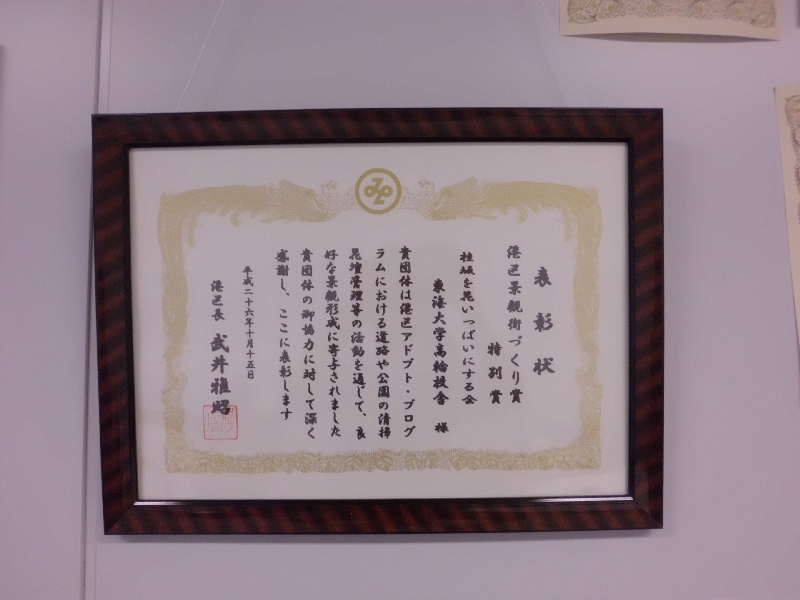 表彰状
港区景観街づくり賞
特別賞
桂坂を花いっぱいにする会
東海大学高輪校舎 様
貴団体は港区アドプト・プログ
ラムにおける道路や公園の清掃
花壇管理等の活動を通じて、良
好な景観形成に寄与されました
貴団体の御協力に対して深く
感謝し、ここに表彰します
平成二十六年十月十五日
港区長 武井雅昭